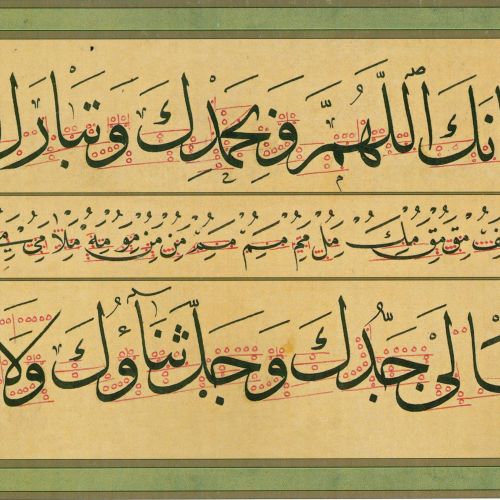 انَكَ اللَّهُمَّ وَبِحَمْدِكَ وَتَبَارَكَ
مق مك مل مم مم من مو مه ملا مى
الَى جَدُّكَ وَجَلَّ ثَنَآؤُكَ وَلَا